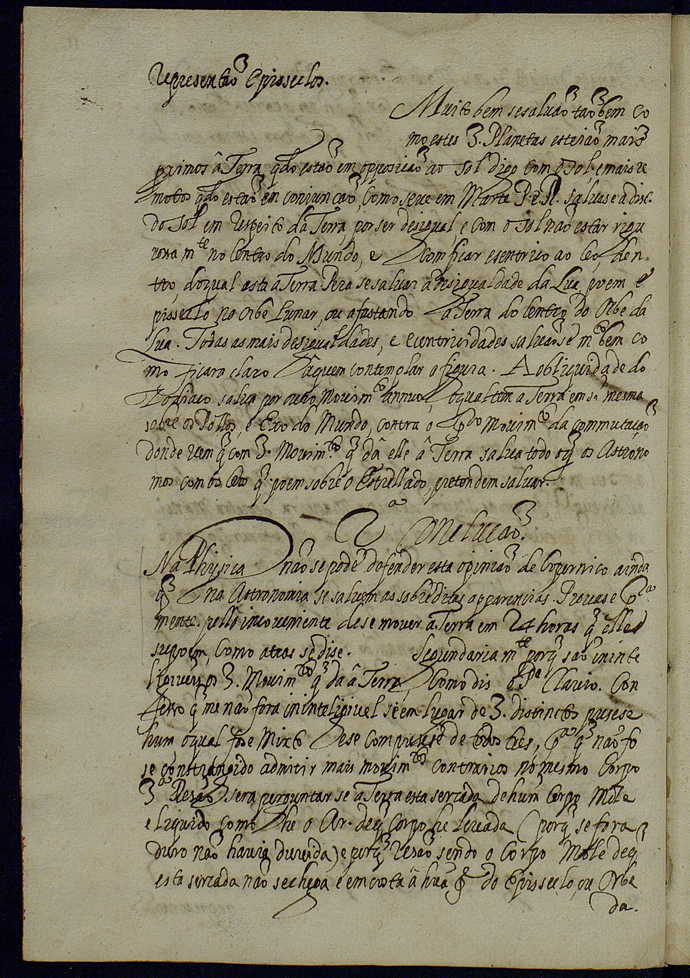 representaõ Episcolos.
Muito bem se saluaõ taõbem co
mo estes 3. Planetas estejaõ mais
proximos â Terra qdo estaõ em opposicaõ ao Sol digo com o Sol. e mais re
motos qdo estaõ em conjuncaõ, Como se ue em Marte saluase a
do Sol em respeito da Terra por ser desigual e com o Sol naõ estar rigu
rosa mte no Centro do Mundo, e ficar excentrico ao Ceo, den
tro do qual asta a Terra. Pera se saluar a desigualdade da Lua, poem E
pissculo no Orbe Lunar, ou afastando a Terra do Centro do Orbe da
Lua. Todas as mais desigualdades, e excentricidades saluaõse mto bem co
mo ficara claro a quem contemplar a figura. A obliquidade do
Zodiaco salua por outro Mouimto annuo, o qual tem a Terra em sj mesma
sobre os Pollos, e Exo do Mundo, contra o Mouimto da commutaçaõ
donde vem q com 3. Mouimtos q dâ elle â Terra salua todo o q os Astrono
mos com os Ceos q poem sobre o Estrellado, pretendem saluar.
2a Conclucaõ.
Na Phisica naõ se pode defender esta opiniaõ de Copernico ainda
q na Astronomia se saluem as sobreditas apparencias. Prouase
mente pello inconueniente de se mouer a Terra em 24 horas q elles
supoem, Como atras se disse. Segundaria mte porq saõ ininte
ligiueis os 3. Mouimtos q dâ â Terra, Como dis o Pe Clauio. Con
fesso q me naõ fora inintelligiuel se em lugar de 3. distinctos pusese
hum o qual fose Mixto e se compusese de todos tres, q naõ fo
se constrangido admitir mais mouimtos contrarios no mesmo Corpo
3a Resaõ sera perguntar se a Terra esta sercada de hum Corpo Mole
e liquido como he o Ar. de q Corpo he leuada (porq se fora
duro naõ hauia duuida) e porq resaõ sendo o Corpo Mole de q
esta sercada naõ se chega e emcosta â hũa pte do Episscolo, ou Orbe
da.